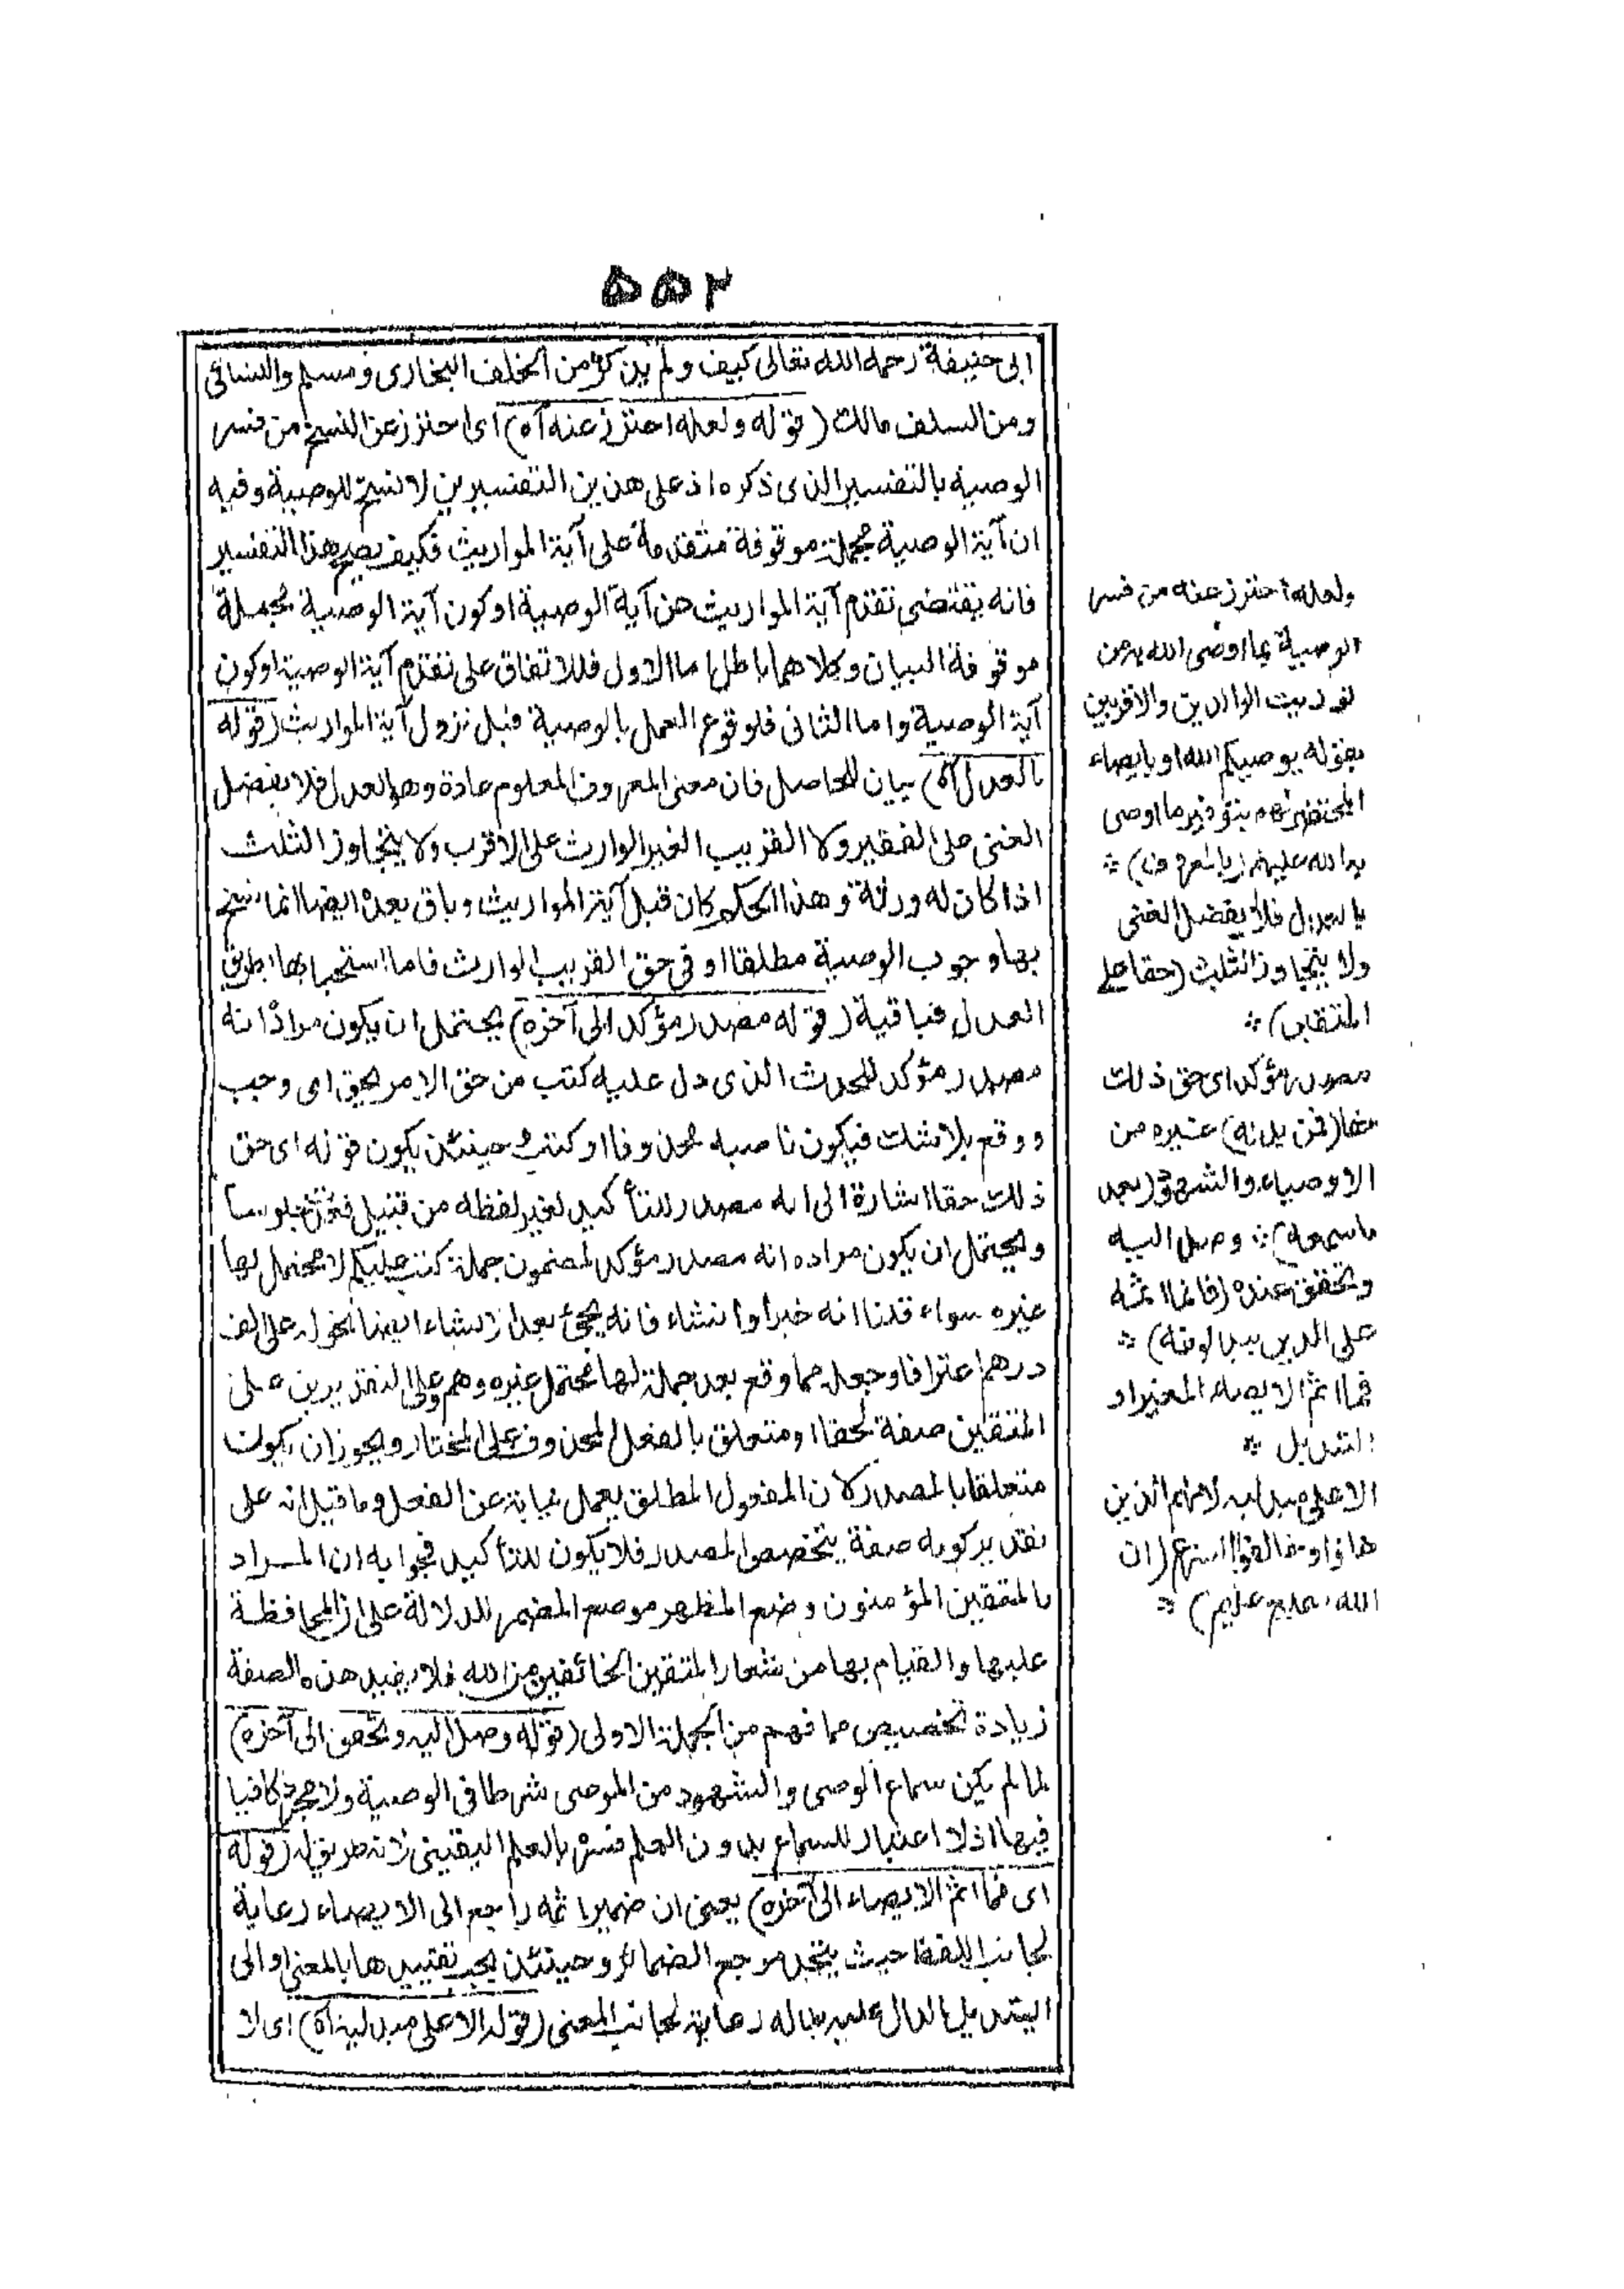 ٥٥٢
ابى حنيفة رحمه الله تعالى كيف ولم يذكره من الخلف البخارى ومسلم والنسائى
ومن السلف مالك (قوله ولعله احترز عنه آه) اى احترز عن النسخ من فسر
الوصية بالتفسير الذى ذكره اذ على هذين التفسيرين لا نسخ للوصية وفيه
ان آية الوصية مجملة موقوفة متقدمة على آية المواريث فكيف يصح هذا التفسير
فانه يقتضى تقدم آية المواريث من آية الوصية او كون آية الوصية مجملة
موقوفة البيان وكلاهما باطل اما الاول فللاتفاق على تقدم آية الوصية او كون
آية الوصية واما الثانى فلوقوع العمل بالوصية قبل نزول آية المواريث (قوله
بالعدل آه) بيان للحاصل فان معنى المعروف المعلوم عادة وهو العدل فلا يفضل
الغنى على الفقير ولا القريب الغير الوارث على الاقرب ولا يتجاوز الثلث
اذا كان له ورثة وهذا الحكم كان قبل آية المواريث وباق بعده ايضا انما نسخ
بها وجوب الوصية مطلقا او فى حق القريب الوارث فاما استحبابها بطريق
العدل فباقية (قوله مصدر مؤكد الى آخره) يحتمل ان يكون مراده انه
مصدر مؤكد للحدث الذى دل عليه كتب من حق الامر يحق اى وجب
ووقع بلا شك فيكون ناصبه محذوفا او كتب وحينئذ يكون قوله اى حق
ذلك حقا اشارة الى انه مصدر للتأكيد لغير لفظه من قبيل قعدت جلوسا
ويحتمل ان يكون مراده انه مصدر مؤكد لمضمون جملة كتب عليكم لا محتمل لها
غيره سواء قلنا انه خبر او انشاء فانه يجئ بعد الانشاء ايضا نحو له على الف
درهم اعترافا وجعله مما وقع بعد جملة لها محتمل غيره وهم وعلى التقديرين على
المتقين صفة لحقا او متعلق بالفعل المحذوف على المختار ويجوز ان يكون
متعلقا بالمصدر لان المفعول المطلق يعمل نيابة عن الفعل وما قيل انه على
تقدير كونه صفة يتخصص المصدر فلا يكون للتأكيد فجوابه ان المراد
بالمتقين المؤمنون وضع المظهر موضع المضمر للدلالة على ان المحافظة
عليها والقيام بها من شعار المتقين الخائفين من الله فلا يفيد هذه الصفة
زيادة تخصيص مما فهم من الجملة الاولى (قوله وصل اليه وتحقق الى آخره)
لما لم يكن سماع الوصى والشهود من الموصى شرطا فى الوصية ولا مجرده كافيا
فيها اذ لا اعتبار للسماع بدون العلم فسره بالعلم اليقينى لانه طريق له (قوله
اى فما اثم الايصاء الى آخره) يعنى ان ضمير اثمه راجع الى الايصاء رعاية
لجانب اللفظ حيث يتحد مرجع الضمائر وحينئذ يجب تقييدها بالمغير او الى
التبديل الدال عليه بدله رعاية لجانب المعنى (قوله الا على مبدليه آه) اى لا
ولعله احترز عنه من فسر
الوصية بما اوصى الله به من
توريث الوالدين والاقربين
بقوله يوصيكم الله او بايصاء
المحتضر لهم بتوفير ما اوصى
به الله عليهم (بالمعروف) *
بالعدل فلا يفضل الغنى
ولا يتجاوز الثلث (حقا على
المتقين) *
مصدر مؤكد اى حق ذلك
حقا (فمن بدله) غيره من
الاوصياء والشهود (بعد
ما سمعه) * وصل اليه
وتحقق عنده (فانما اثمه
على الذين يبدلونه) *
فما اثم الايصاء المغير او
التبديل *
الا على مبدليه لانهم الذين
خافوا وخالفوا الشرع (ان
الله سميع عليم) *